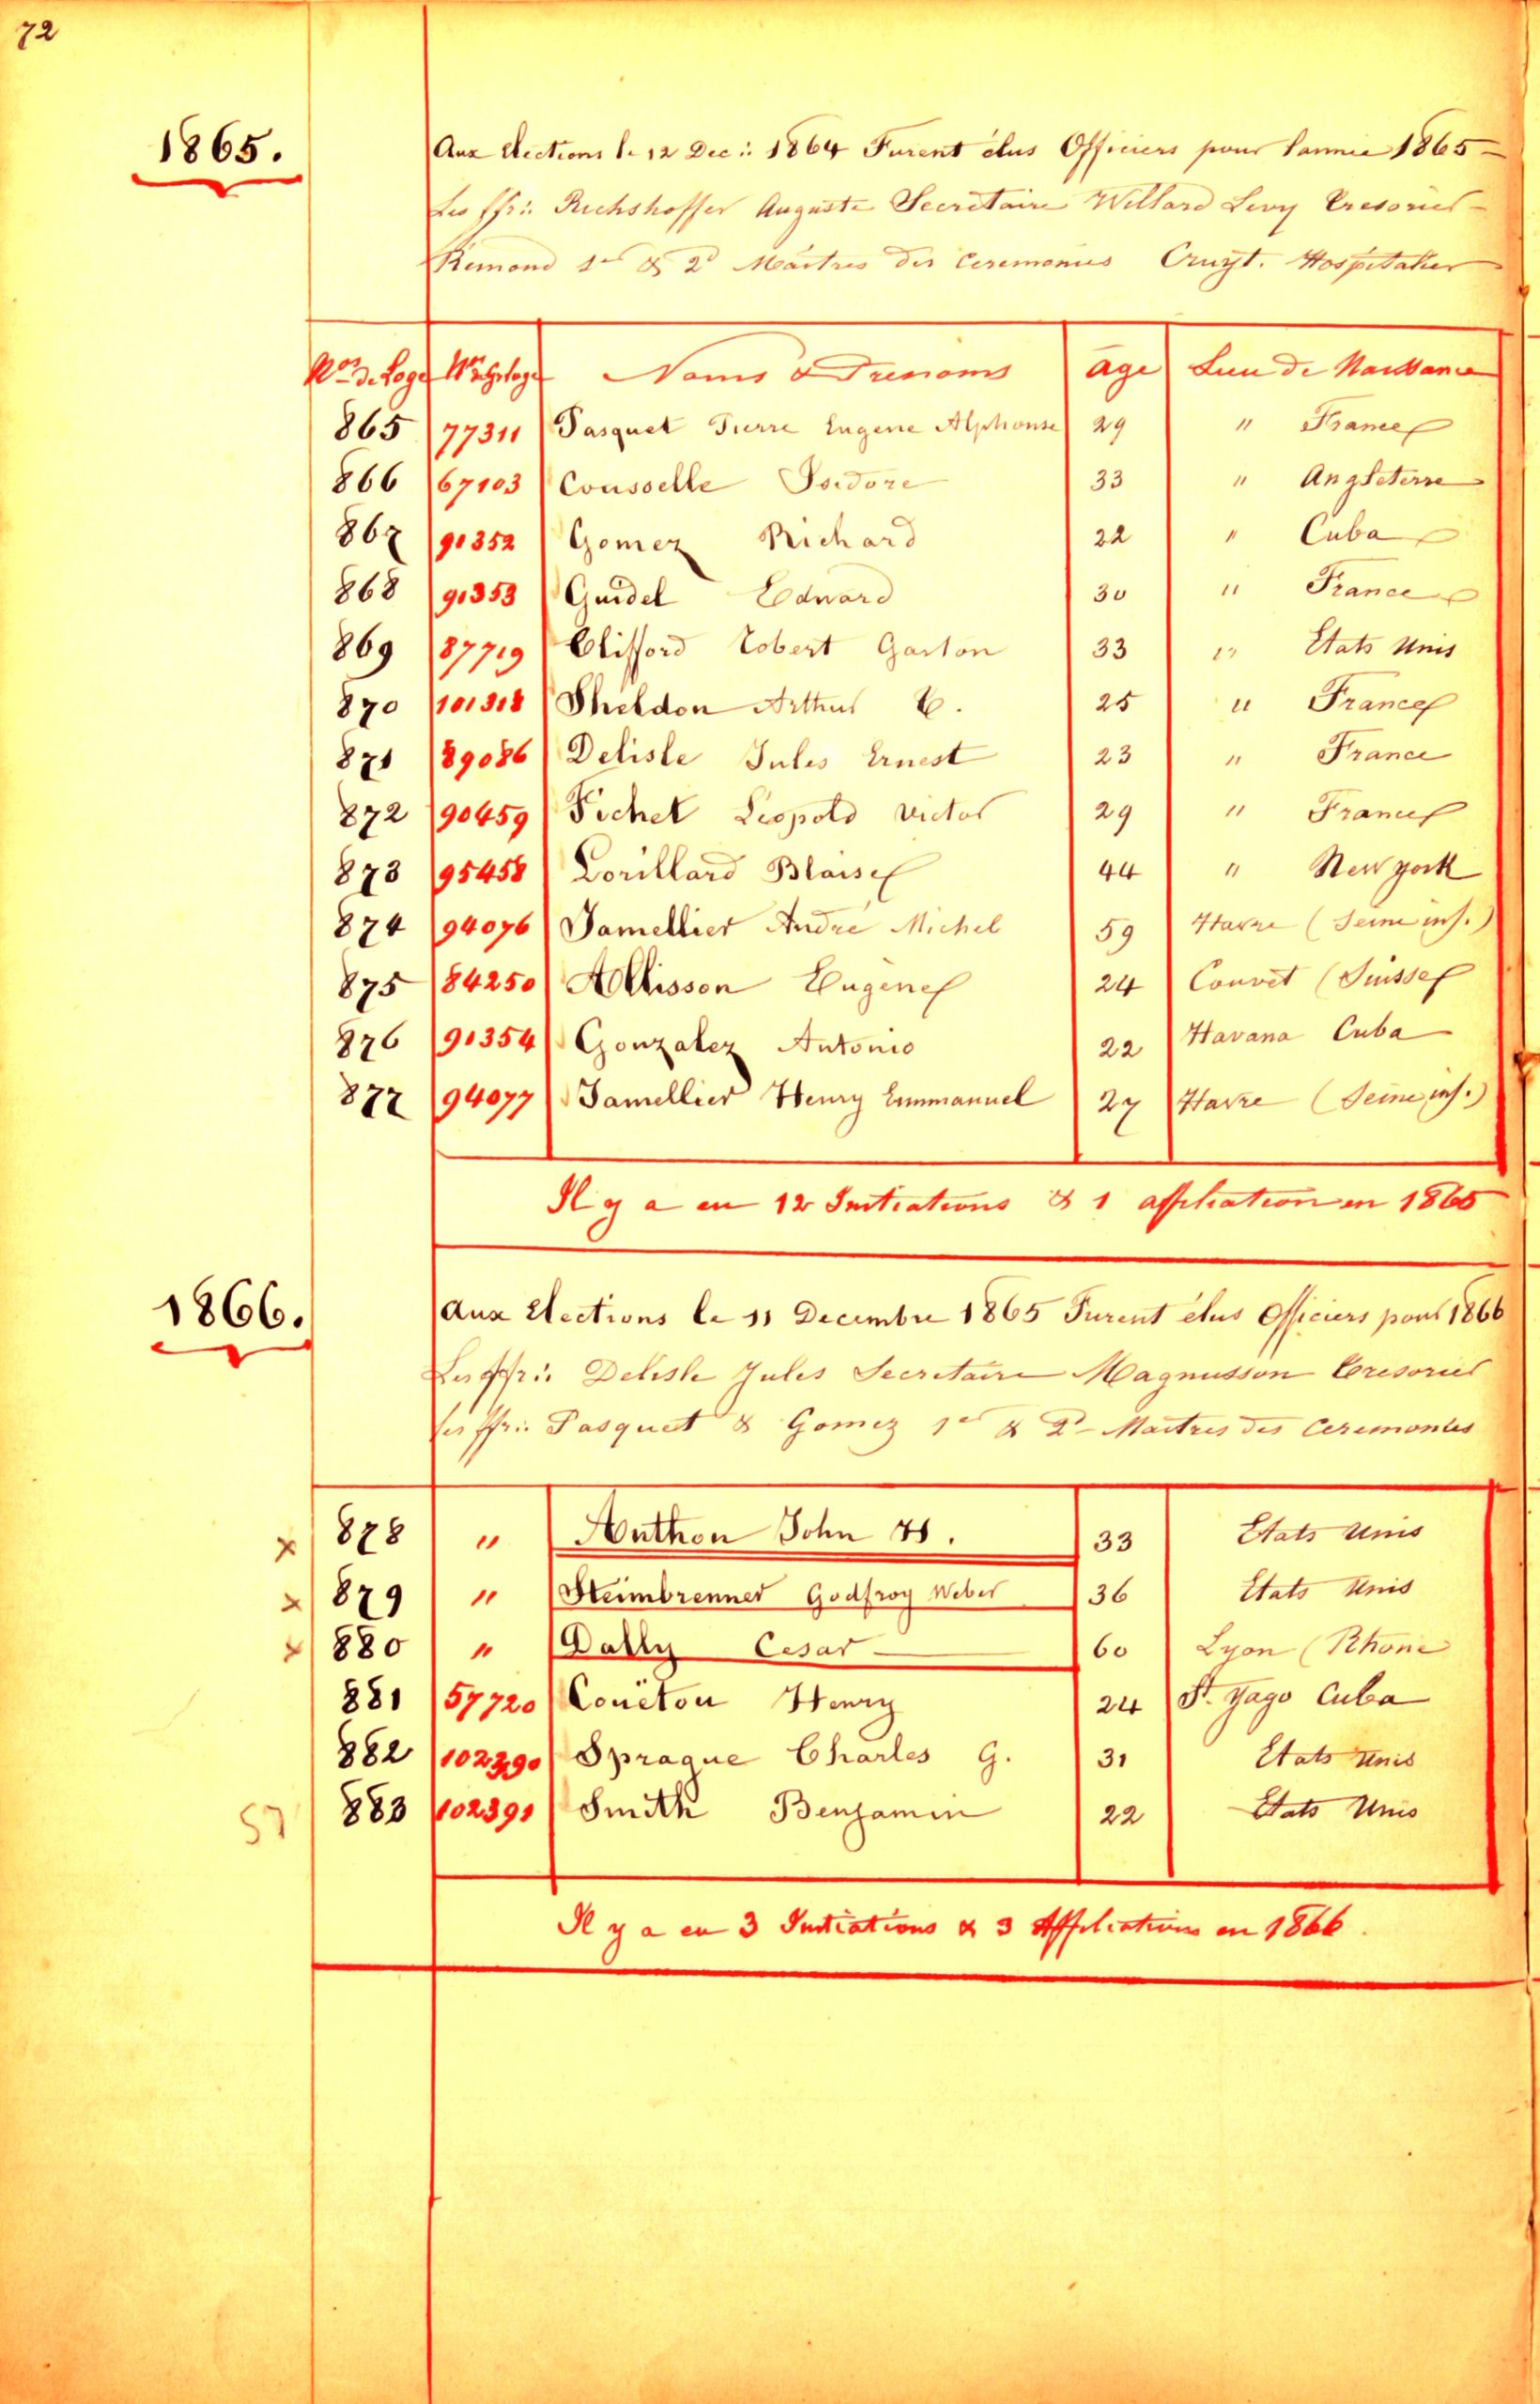 72
1865.
Aux Elections le 12 Dec∴ 1864 Furent élus Officiers pour l'annee 1865 —
Les ffr∴ Richshoffer Auguste Secretaire Willard Levy Tresorier —
Remond 1er & 2d Maitres des Ceremonies Cruyt. Hospitalier
Nos de Loge Nos Gr Loge Noms & Prenoms age Lieu de Naissance
865 77311 Pasquet Pierre Eugene Alphonse 29 " France
866 67103 Cousselle Isidore 33 " Angleterre
867 91352 Gomez Richard 22 " Cuba
868 91353 Guidel Edward 30 " France
869 87719 Clifford Robert Gaston 33 " Etats Unis
870 101318 Sheldon Arthur C. 25 " France
871 89086 Delisle Jules Ernest 23 " France
872 90459 Fichet Leopold Victor 29 " France
873 95458 Lorillard Blaise 44 " New York
874 94076 Jamellier André Michel 59 Havre (Seine inf.)
875 84250 Allisson Eugene 24 Couvet (Suisse
876 91354 Gonzalez Antonio 22 Havana Cuba
877 94077 Jamellier Henry Emmanuel 27 Havre (Seine inf.)
Il y a eu 12 Initiations & 1 affiliation en 1865
1866.
Aux Elections le 11 Decembre 1865 Furent élus Officiers pour 1866
Les ffr∴ Delisle Jules Secretaire Magnusson Tresorier
les ffr∴ Pasquet & Gomez 1er & 2d Maitres des Ceremonies
x 878 " Anthon John H. 33 Etats Unis
x 879 " Steimbrenner Godfroy Weber 36 Etats Unis
x 880 " Dally Cesar 60 Lyon (Rhone
881 57720 Couëtou Henry 24 St. Yago Cuba
882 102390 Sprague Charles G. 31 Etats Unis
57 883 102391 Smith Benjamin 22 Etats Unis
Il y a eu 3 Initiations & 3 Affiliations en 1866.